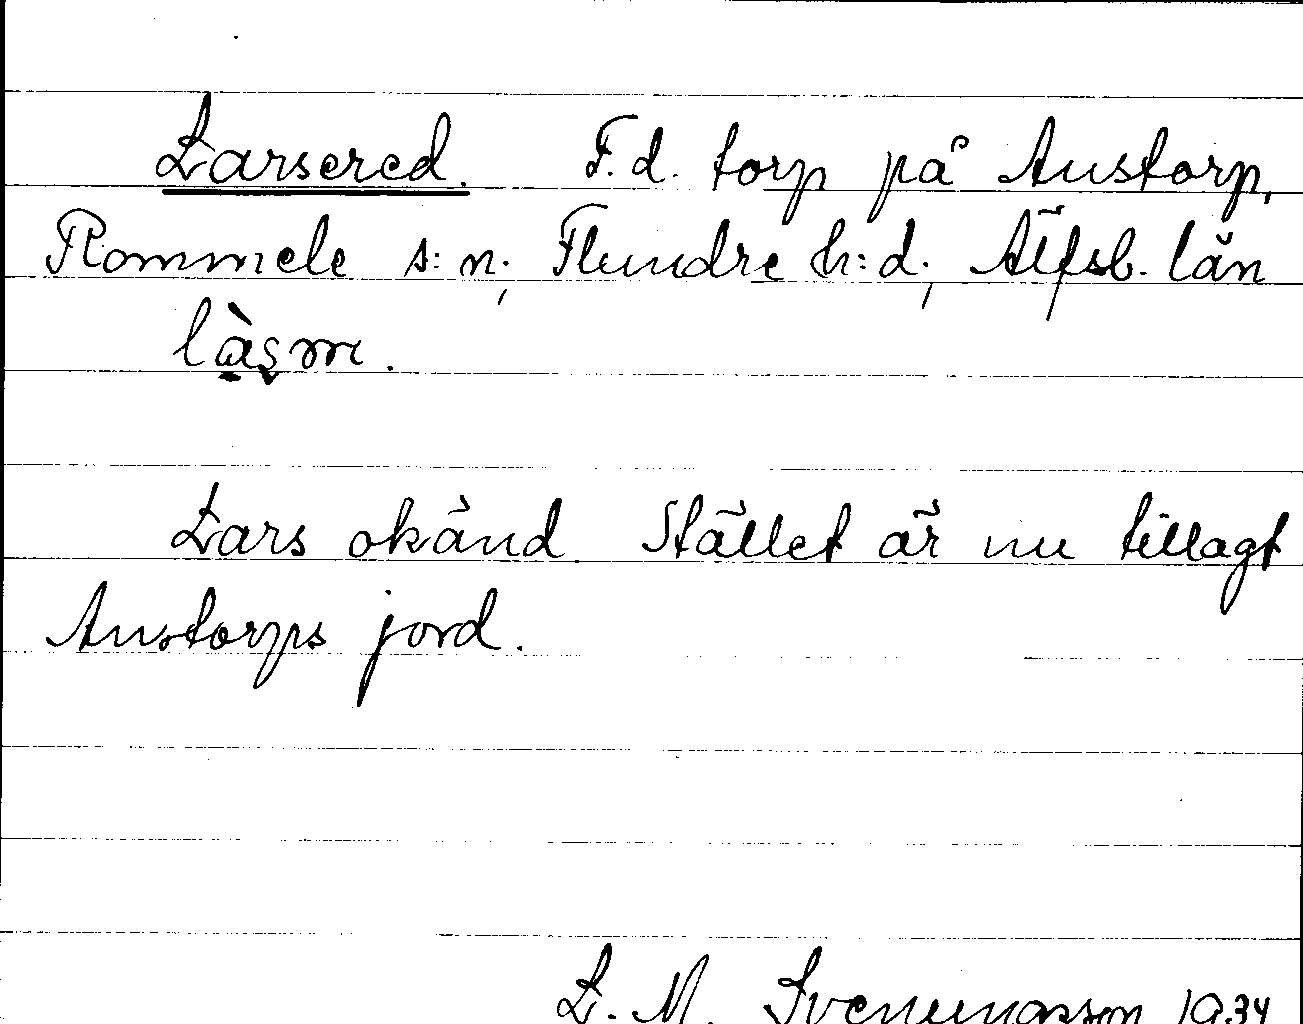 Larsered. F.d. torp på Austorp,
Rommele s:n, Flundre h:d, Älfsb. län
làsm.
Lars okänd. Stället är nu tillagt
Austorps jord.
L. M. Svenungsson 1934